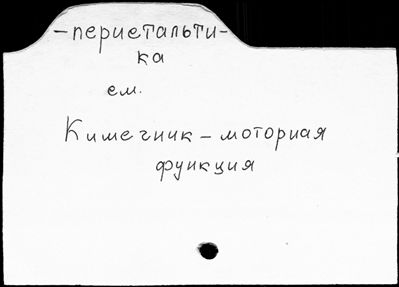 -перистальти-
ка
см.
Кишечник – моторная
функция